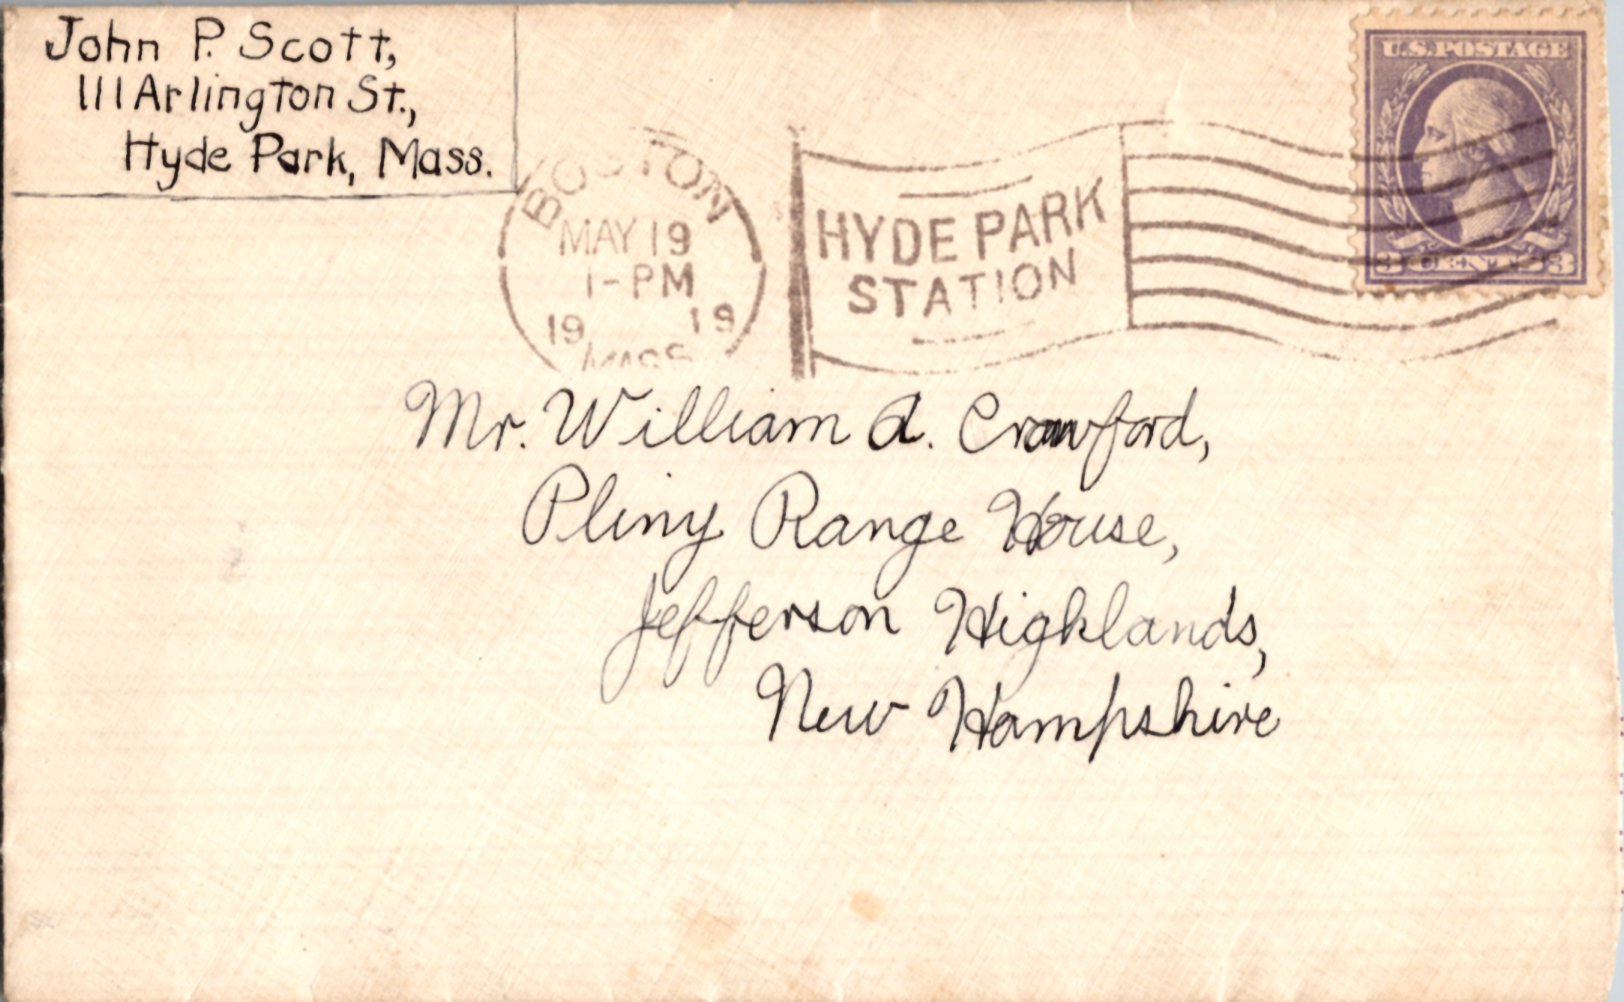 John P. Scott,
111 Arlington St.,
Hyde Park, Mass.
U.S. POSTAGE
3 CENTS 3
BOSTON
MAY 19
1-PM
19 19
MASS.
HYDE PARK
STATION
Mr. William A. Crawford,
Pliny Range House,
Jefferson Highlands,
New Hampshire